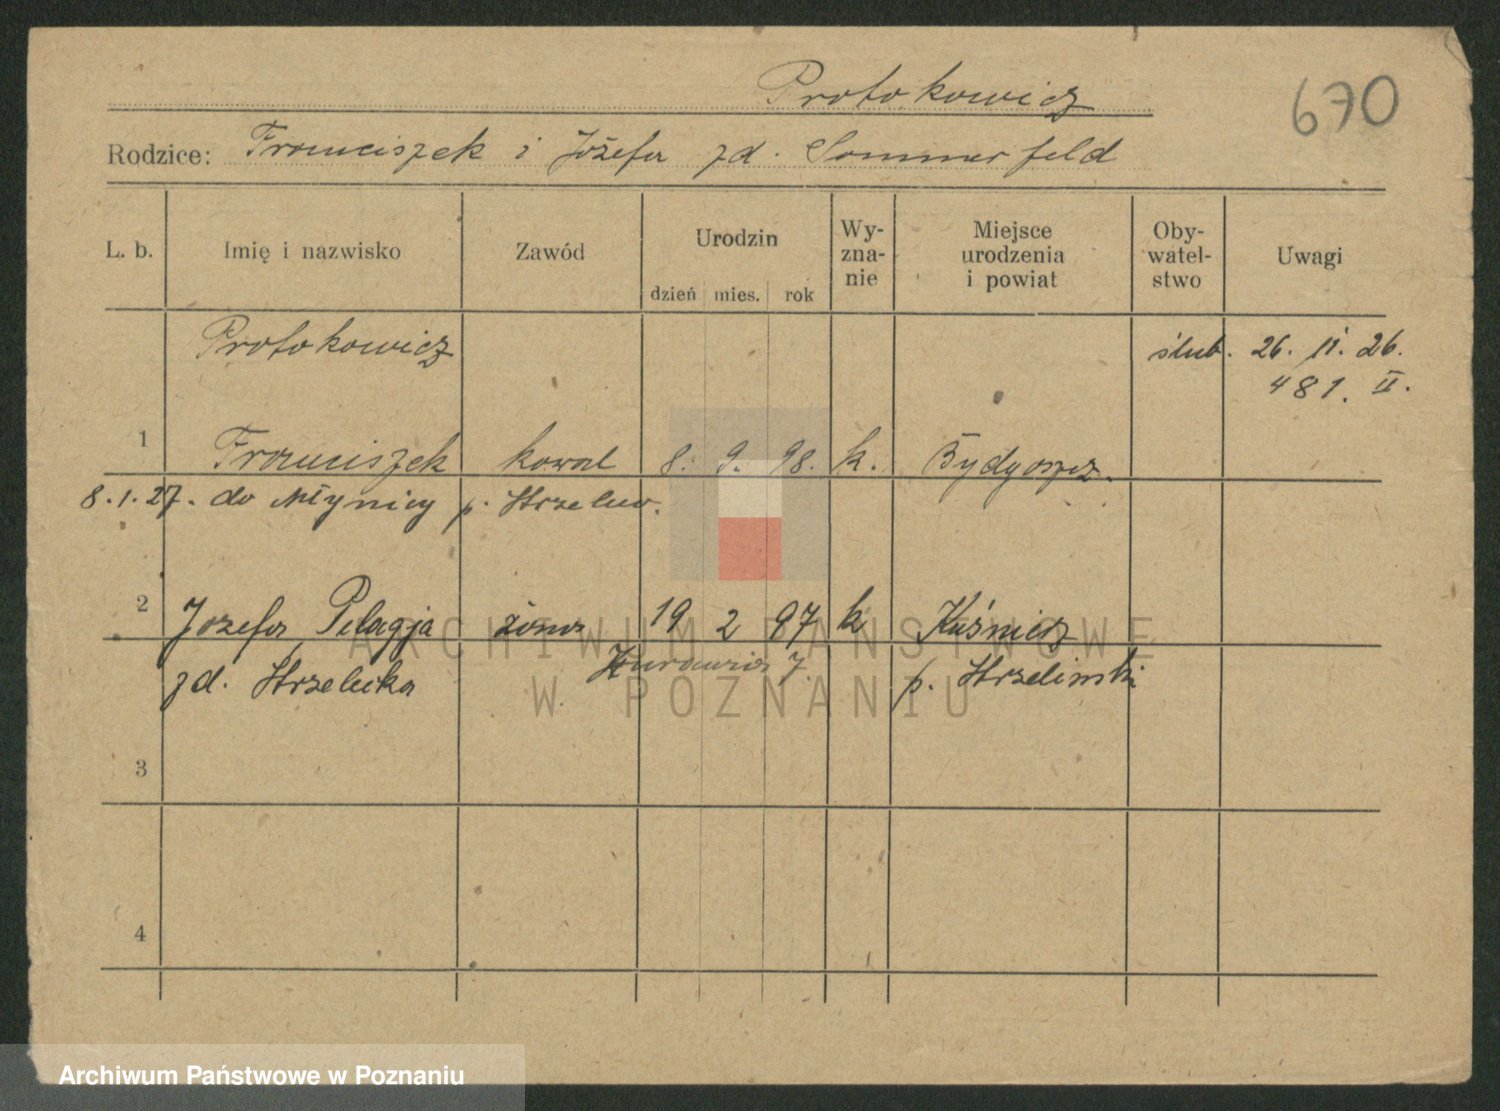 Protokowicz
670
Rodzice: Franciszek i Józefa zd. Sommerfeld
L. b. Imię i nazwisko Zawód Urodzin dzień mies. rok Wy-zna-nie Miejsce urodzenia i powiat Oby-watel-stwo Uwagi
Protokowicz ślub. 26. 11. 26.
481. II.
1 Franciszek kowal 8. 9. 98. k. Bydgoszcz.
8.1.27. do Młynicy p. Strzelno.
2 Jozefa Pelagja żona 19 2 97 k Kuśnierz
zd. Strzelecka p. Strzelinski
3
4
ARCHIWUM PAŃSTWOWE
W POZNANIU
Archiwum Państwowe w Poznaniu